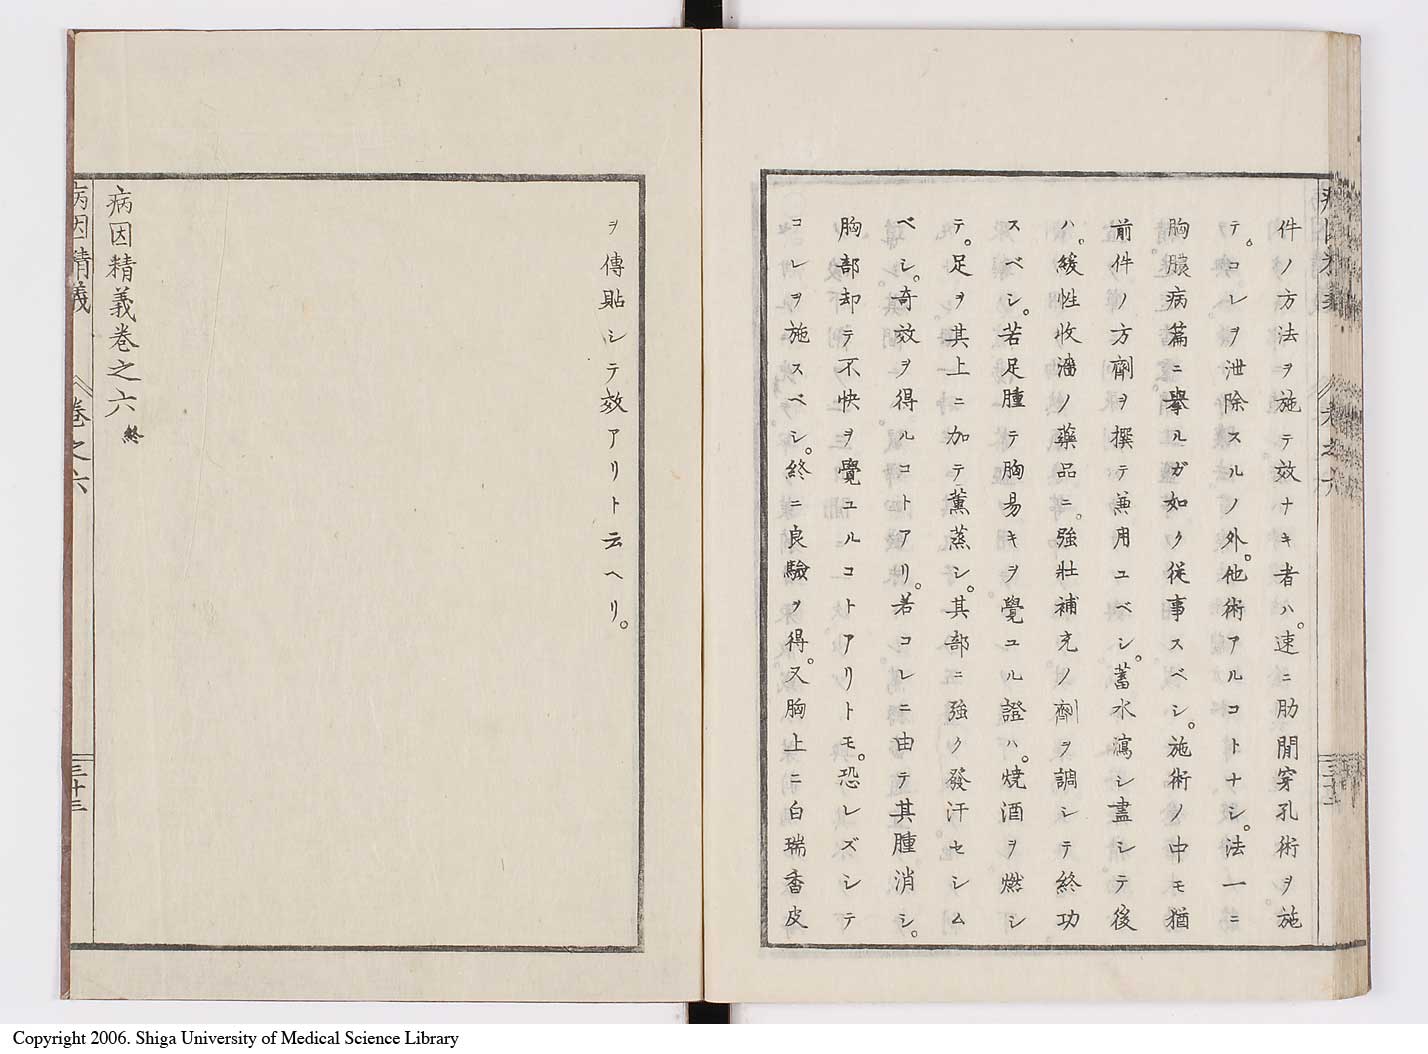 件ノ方法ヲ施テ效ナキ者ハ。速ニ肋間穿孔術ヲ施
テ。コレヲ泄除スルノ外。他術アルコトナシ。法一ニ
胸膿病篇ニ擧ルガ如ク従事スベシ。施術ノ中モ猶
前件ノ方劑ヲ撰テ兼用ユベシ。蓄水瀉シ盡シテ後
ハ。緩性收濇ノ藥品ニ。強壯補充ノ劑ヲ調シテ終功
スベシ。若足腫テ胸易キヲ覺ユル證ハ。焼酒ヲ燃シ
テ。足ヲ其上ニ加テ薫蒸シ。其部ニ強ク發汗セシム
ベシ。奇效ヲ得ルコトアリ。若コレニ由テ其腫消シ。
胸部却テ不快ヲ覺ユルコトアリトモ。恐レズシテ
コレヲ施スベシ。終ニ良驗ヲ得。又胸上ニ白瑞香皮
ヲ傳貼シテ效アリト云ヘリ。
病因精義卷之六終
病因精義 卷之六 三十三
Copyright 2006. Shiga University of Medical Science Library